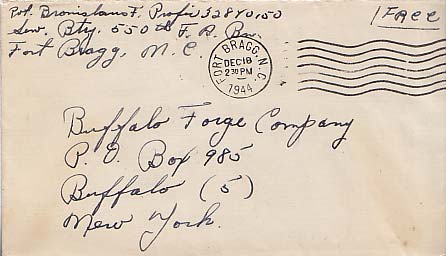 Pvt. Bronislaus F. 
Serv. Btry. 550th F. A. Bn.
Fort Bragg, N. C.
Free
FORT BRAGG, N.C.
DEC 18
2 30 PM
1944
Buffalo Forge Company
P. O. Box 985
Buffalo (5)
New York.